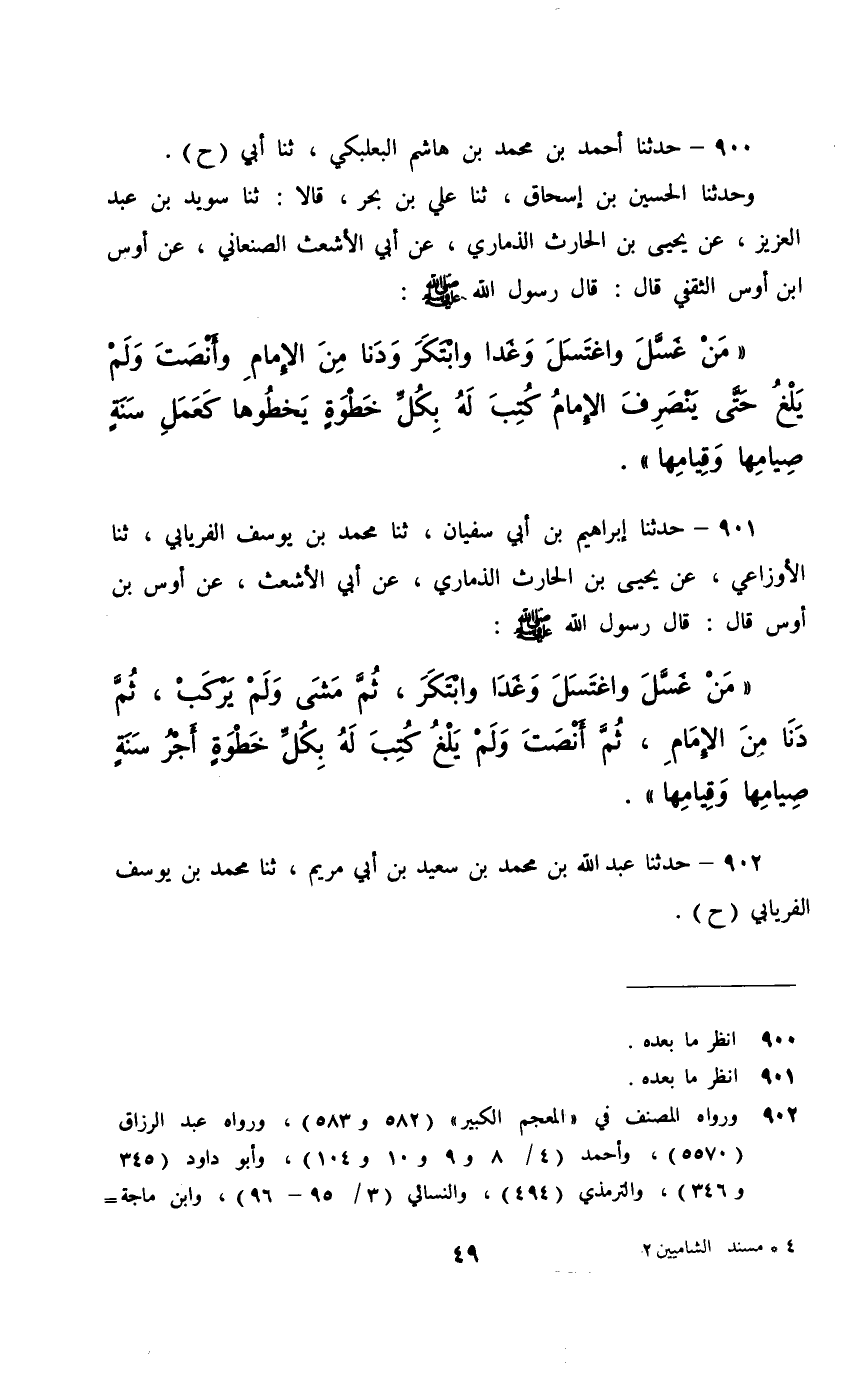 ٩٠٠ – حدثنا أحمد بن محمد بن هاشم البعلبكي ، ثنا أبي (ح) .
وحدثنا الحسين بن إسحاق ، ثنا علي بن بحر ، قالا : ثنا سويد بن عبد
العزيز ، عن يحيـى بن الحارث الذماري ، عن أبي الأشعث الصنعاني ، عن أوس
ابن أوس الثقفي قال : قال رسول الله ﷺ :
« مَنْ غَسَّلَ واغتَسَلَ وَغَدا وابْتَكَرَ وَدَنا مِنَ الإمامِ وأَنْصَتَ وَلَمْ
يَلْغُ حَتَّى يَنْصَرِفَ الإمامُ كُتِبَ لَهُ بِكُلِّ خَطْوَةٍ يَخطُوها كَعَمَلِ سَنَةٍ
صِيامِها وَقِيامِها » .
٩٠١ – حدثنا إبراهيم بن أبي سفيان ، ثنا محمد بن يوسف الفريابي ، ثنا
الأوزاعي ، عن يحيـى بن الحارث الذماري ، عن أبي الأشعث ، عن أوس بن
أوس قال : قال رسول الله ﷺ :
« مَنْ غَسَّلَ واغتَسَلَ وَغَدَا وابْتَكَرَ ، ثُمَّ مَشَى وَلَمْ يَرْكَبْ ، ثُمَّ
دَنَا مِنَ الإمَامِ ، ثُمَّ أَنْصَتَ وَلَمْ يَلْغُ كُتِبَ لَهُ بِكُلِّ خَطْوَةٍ أَجْرُ سَنَةٍ
صِيامِها وَقِيامِها » .
٩٠٢ – حدثنا عبد الله بن محمد بن سعيد بن أبي مريم ، ثنا محمد بن يوسف
الفريابي (ح) .
٩٠٠ انظر ما بعده .
٩٠١ انظر ما بعده .
٩٠٢ ورواه المصنف في «المعجم الكبير» (٥٨٢ و ٥٨٣) ، ورواه عبد الرزاق
(٥٥٧٠) ، وأحمد (٤/ ٨ و ٩ و ١٠ و ١٠٤) ، وأبو داود (٣٤٥
و ٣٤٦) ، والترمذي (٤٩٤) ، والنسائي (٣/ ٩٥ – ٩٦) ، وابن ماجة=
٤ ٥ مسند الشاميين ٢
٤٩